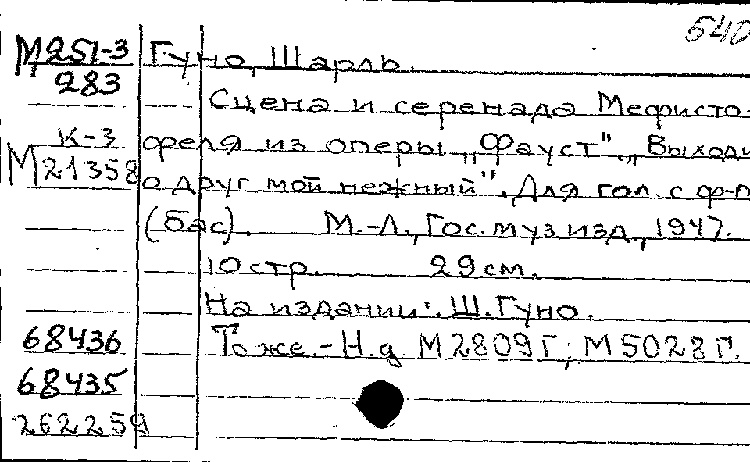 540
М251-3 Гуно, Шарль.
283
Сцена и серенада Мефисто-
К-3 феля из оперы „Фауст". „Выходи
М21358 о друг мой нежный". Для гол. с ф-п
(бас). М.-Л., Гос. муз изд, 1947.
10 стр. 29 см.
На издании: Ш. Гуно.
68436 То же. - Н.д М2809Г; М5028Г.
68435
262259